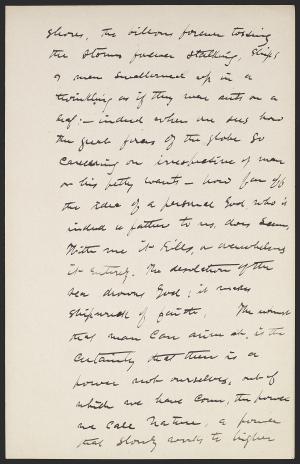 shores, the billows forever tossing
the storms forever stalking, ships
& men swallowed up in a
twinkling as if they were ants on a
leaf: — indeed when one sees how
the great forces of the globe go
careering on irrespective of man
or his petty wants — how far off
the idea of a personal God who is
indeed a father to us, does seem,
With me it kills, or overwhelms
it entirely. The desolation of the
sea drowns God; it makes
shipwreck of faith. The utmost
that man can arrive at, is the
certainty that there is a
power not ourselves, out of
which we have come, the power
we call Nature, a power
that slowly works to higher